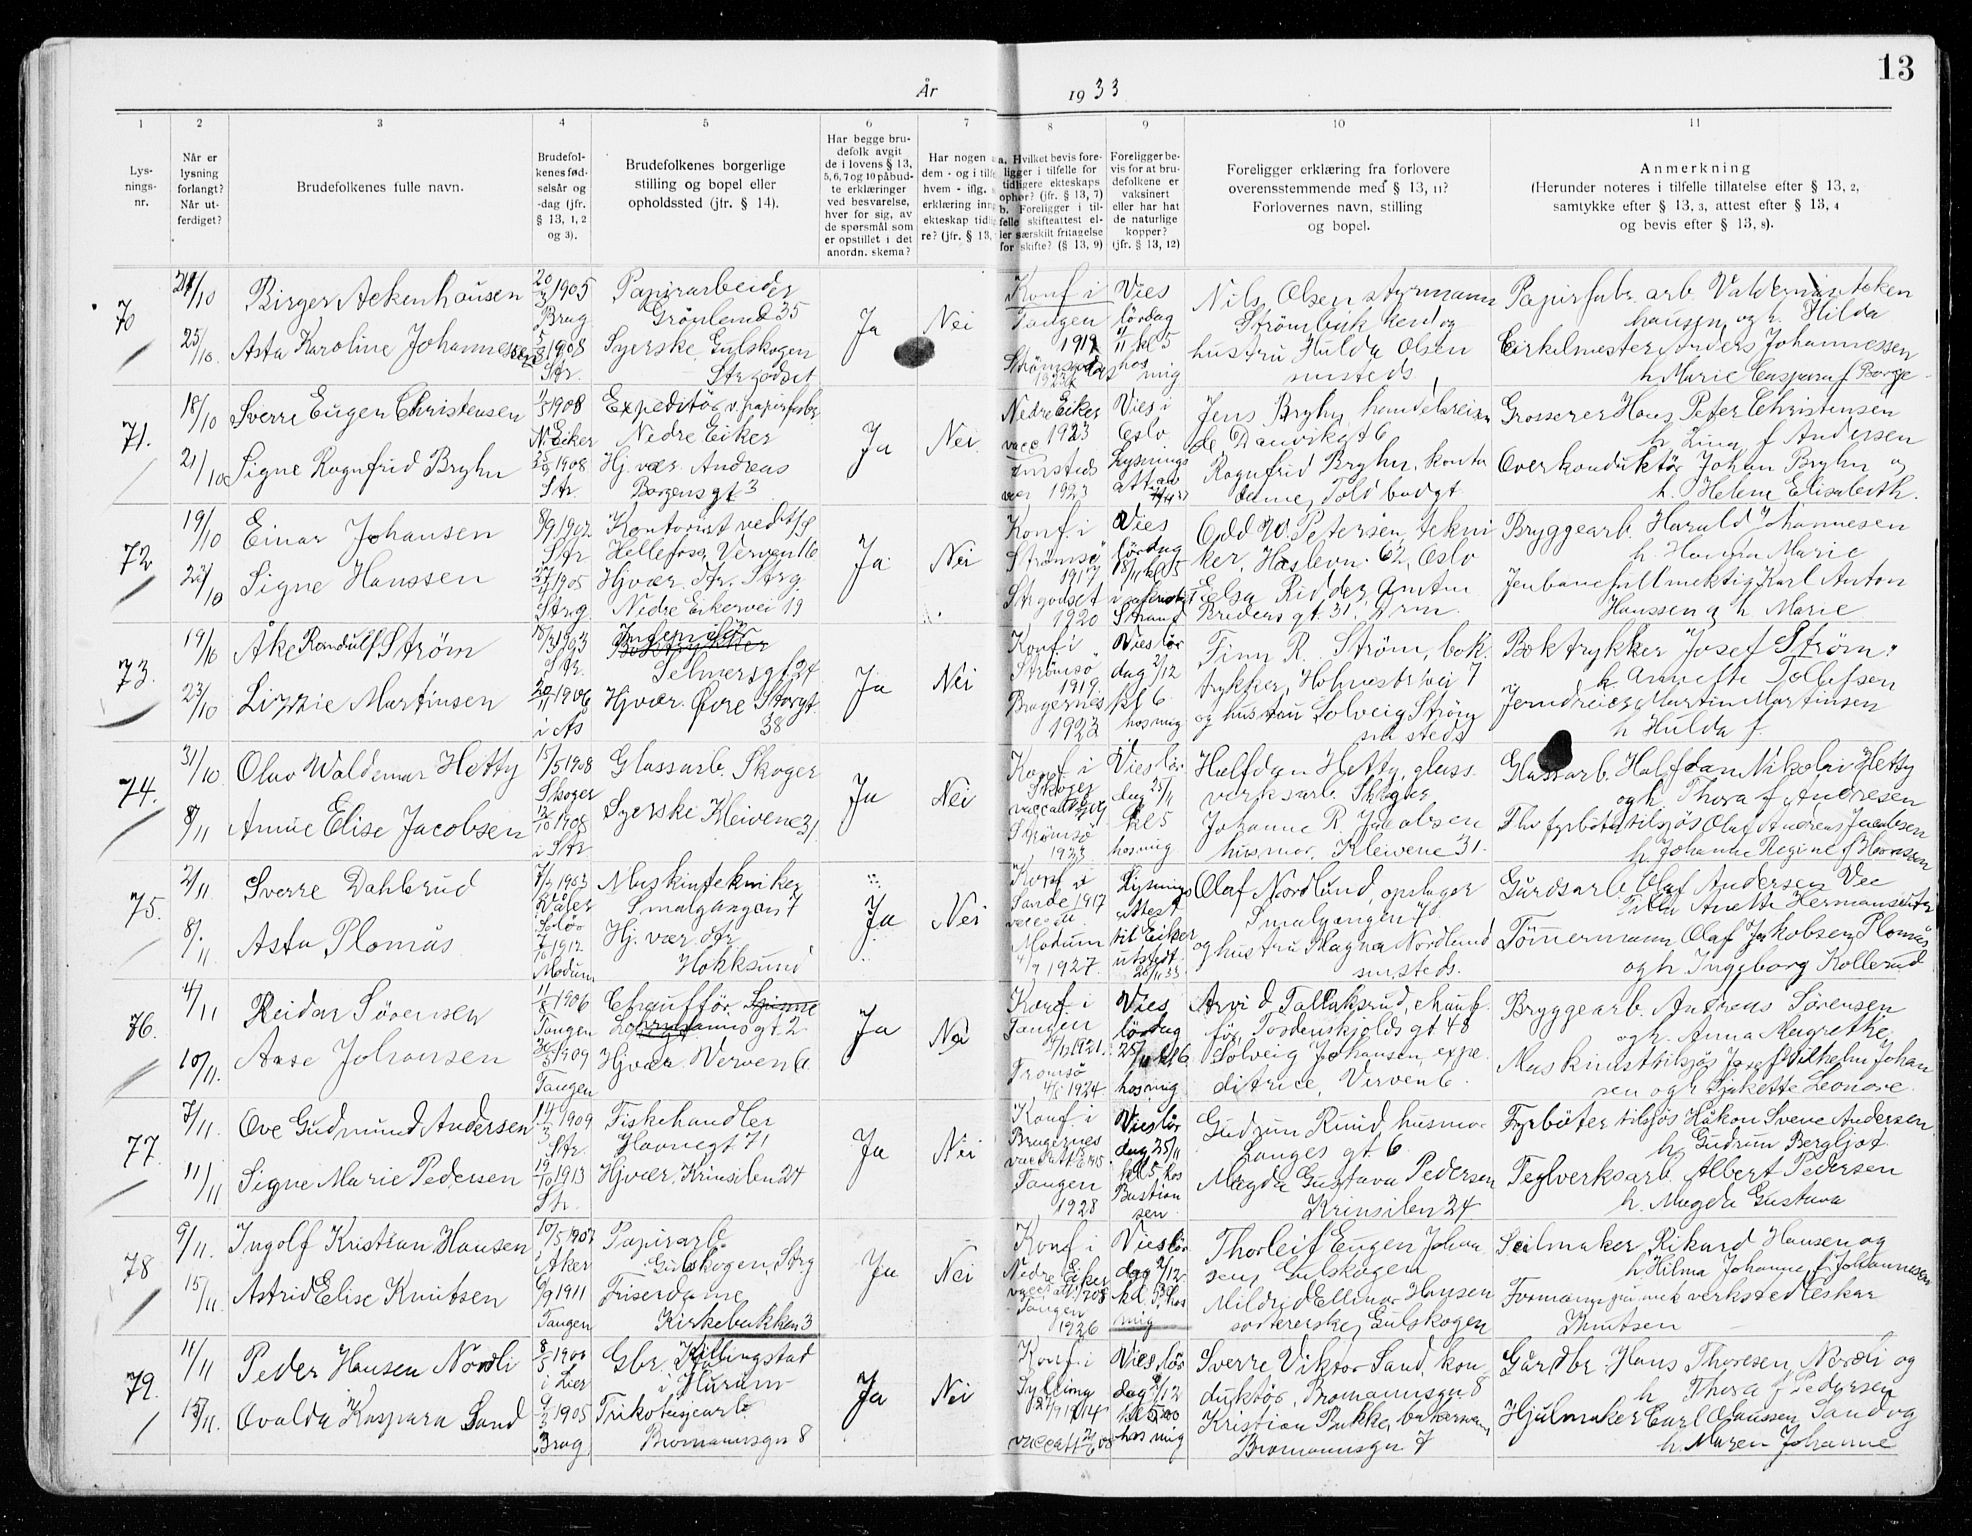 13
År 1933
1 2 3 4 5 6 7 8 9 10 11
Lys-
nings-
nr.
Når er
lysning
forlangt?
Når ut-
ferdiget?
Brudefolkenes fulle navn.
Brudefol-
kenes fød-
selsår og
-dag (jfr.
§ 13, 1, 2
og 3).
Brudefolkenes borgerlige
stilling og bopel eller
opholdssted (jfr. § 14).
Har begge bru-
defolk avgit
de i lovens § 13,
5, 6, 7 og 10 påbud-
te erklæringer
ved besvarelse,
hver for sig, av
de spørsmål som
er opstillet i det
anordn. skema?
Har nogen a
dem - og i tilf
hvem - iflg. s
erklæring inn
ekteskap tidlig
re? (jfr. § 13,
a. Hvilket bevis fore-
ligger i tilfelle for
tidligere ekteskaps
ophør? (jfr. § 13, 7)
b. Foreligger i til-
felle skifteattest el-
ler særskilt fritagelse
for skifte? (§ 13, 9)
Foreligger be-
vis for at bru-
defolkene er
vaksinert
eller har hat
de naturlige
kopper?
(jfr. § 13, 12)
Foreligger erklæring fra forlovere
overensstemmende med § 13, 11?
Forlovernes navn, stilling
og bopel.
Anmerkning
(Herunder noteres i tilfelle tillatelse efter § 13, 2,
samtykke efter § 13, 3, attest efter § 13, 4
og bevis efter § 13, 8).
70
21/10
25/10
Birger Ackenhausen
Asta Karoline Johannesen
20/3 1905
Brag.
5/8 1908
Str.
Papirarbeider
Grönland 35
Syerske, Gulskogen
Strgodset
Ja
Nei
Konf i
Tangen
1919
Vies
lördag
11/11 kl 5
hos
mig
Nils Olsen styrmann
hustru Hulda Olsen
smsteds
Papirfabr. arb. Valdemar Acken
hausen og h. Hilda
Cirkelmester Anders Johannessen
h Marie Caspara f Borge
71.
18/10
21/10
Sverre Eugen Christensen
Signe Ragnfrid Bryhn
1908
N. Eiker
25/9 1908
Str.
Expeditör v. papirfabr.
Nedre Eiker
Hj. vær. Andreas
Borgensgt 3
Ja
Nei
Nedre Eiker
vacc 1923
smsteds
vacc 1923
Vies i
Oslo
Lysnings
att av
Jens Bryhn, handelsreisen
de Danvikgt 6
Ragnfrid Bryhn, kontor
dame, Toldbodgt.
Grosserer Hans Peter Christensen
h. Lina f Andersen
Overkonduktör Johan Bryhn og
h. Helene Elisabeth.
72
19/10
Einar Johansen
Signe Hanssen
8/9 1902
Str
27/4 1905
Strg.
Kontorist ved A/S
Hellefoss, Verven 16
Hjvær. dtr. Strg.
Nedre Eikervei 19
Ja
Nei
Konf. i
Strömsö
1917
Strgodset
1920
Vies
lördag
18/11 kl 5
Strand
Odd W. Petersen, tekni
ker, Haslevn. 62, Oslo
Elsa Ridder, Amtm
Bredens gt. 31. Drm.
Bryggearb. Harald Johannesen
h. Hanna Marie
Jenbanefullmektig Karl Anton
Hanssen og h Marie
73.
19/10
23/10
Åke Randulf Strøm
Lizzie Martinsen
18/3 1903
Str.
20/11 1906
i Ås
Ingeniör
Boktrykker
Selmersgt 24
Hjvær. Øvre Storgt
38
Ja
Nei
Konf i
Strömsö
1919
Bragernes
1922
Vies lör
dag 2/12
kl 6
hos mig
Finn R. Strøm, bok.
trykker, Holmestr.vei 7
og hustru Solveig Strøm
smsteds
Boktrykker Josef Strøm.
h. Annette Tollefsen
Jerndreier Martin Martinsen
h Hulda f
74.
31/10
8/11
Olav Waldemar Hetty
Annie Elise Jacobsen
15/5 1908
Skoger
12/10 1908
i Str
Glassarb. Skoger
Syerske Kleivene 31.
Ja
Nei
Konf i
Skoger
Strömsö
1923
Vies lör
dag 25/11
kl 5
hos mig.
Halfdan Hetty, glass
verksarb Skoger
Johanne R. Jacobsen
husmor, Kleivene 31.
Glassarb. Halfdan Nikolai Hetty
og h. Thora f Andresen
Fhv fyrböter tilsjös Olaf Andreas Jacobsen
h. Johanne Regine f Hansen
75.
2/11
8/11
Sverre Dahlerud
Asta Plomås
7/7 1903
Våler
Solör
7/10 1912
Modum
Maskintekniker
Smalgangen 7
Hj. vær. dtr
Hokksund
Ja
Nei
Konf i
Sande 1917
Modum
1927.
Lysnings
attest
til Eiker
utstedt
20/11 33
Olaf Nordlund, opslager
Smalgangen 7
og hustru Magna Nordlund
smsteds.
Gårdsarb Olaf Andersen Vee
Tömmermann Olaf Jakobsen Plomås
og h Ingeborg Kollerud
76.
4/11
10/11.
Reidar Sörensen
Aase Johansen
11/8 1906
Tangen
30/5 1909
Tangen
Chaufför
Lohrmanns gt. 2
Hjvær Verven 6
Ja
Nei
Konf. i
Tangen
1921.
Tromsö
1924
Vies
lördag
25/11 kl 6
hos mig
Arvid Tallaksrud, chauf
för, Tordenskjolds gt 48
Solveig Johansen, expe
ditrice, Verven 6.
Bryggearb. Andreas Sörensen
og h. Anna Magrethe
Maskinist tilsjös Josef Vilhelm Johan
sen og h Sjakette Leonore.
77.
7/11.
11/11
Ove Gudmund Andersen
Signe Marie Pedersen
14/3 1909
Str.
19/10 1913
Str.
Fiskehandler
Havnegt 71
Hjvær, Krinsilen 24
Ja
Nei
Konf. i
Bragernes
Tangen
1928
Vies lör
dag 25/11
kl 5 hos
Bastian
sen.
Gudrun Ruud, husmor
Langes gt. 6
Magda Gustava Pedersen
Krinsilen 24
Fyrböter tilsjös Håkon Svene Andersen
h Gudrun Bergljot
Teglverksarb. Albert Pedersen
h. Magda Gustava
78
9/11.
15/11.
Ingolf Kristian Hansen
Astrid Elise Knutsen
10/5 1907
i Aker
6/9 1911
Tangen
Papirarb
Gulskogen, Strg
Friserdame
Kirkebakken 3
Ja
Nei
Konf i
Nedre Eiker
Tangen
1926
Vies lör
dag 2/12
mig
Thorleif Eugen Johan
sen, Gulskogen
Mildrid Ellinor Hansen
sorterske, Gulskogen
Seilmaker Rikard Hansen og
h Hilma Johanne f Johannesen
Formann på mek verksted Oskar
Knutsen
79.
11/11
15/11.
Peder Hansen Nordli
Ovalda Kaspara Sand
8/5 1900
i Lier
1905
Brag.
Gbr. Killingstad
i Hurum
Trikotagearb.
Bromannsgn 8
Ja
Nei
Konf. i
Sylling
1914
Vies lör
dag 9/12
hos mig
Sverre Viktor Sand, kon
duktör, Bromannsgn 8
Kristian Bakke, bakersv.,
Bromannsgn 7
Gårdbr. Hans Thoresen Nordli og
h Thora f Pedersen
Hjulmaker Carl Olaussen Sand og
h. Maren Johanne